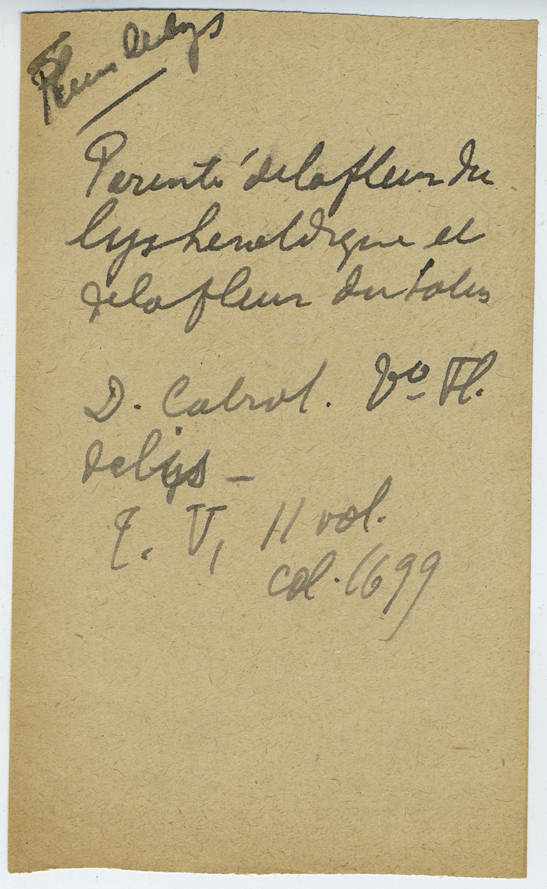 Fleur de lys
Parenté de la fleur du
lys heraldique et
de la fleur du lotus
D. Cabrol. Vo Fl.
de lys -
T. V, II vol.
col. 1699